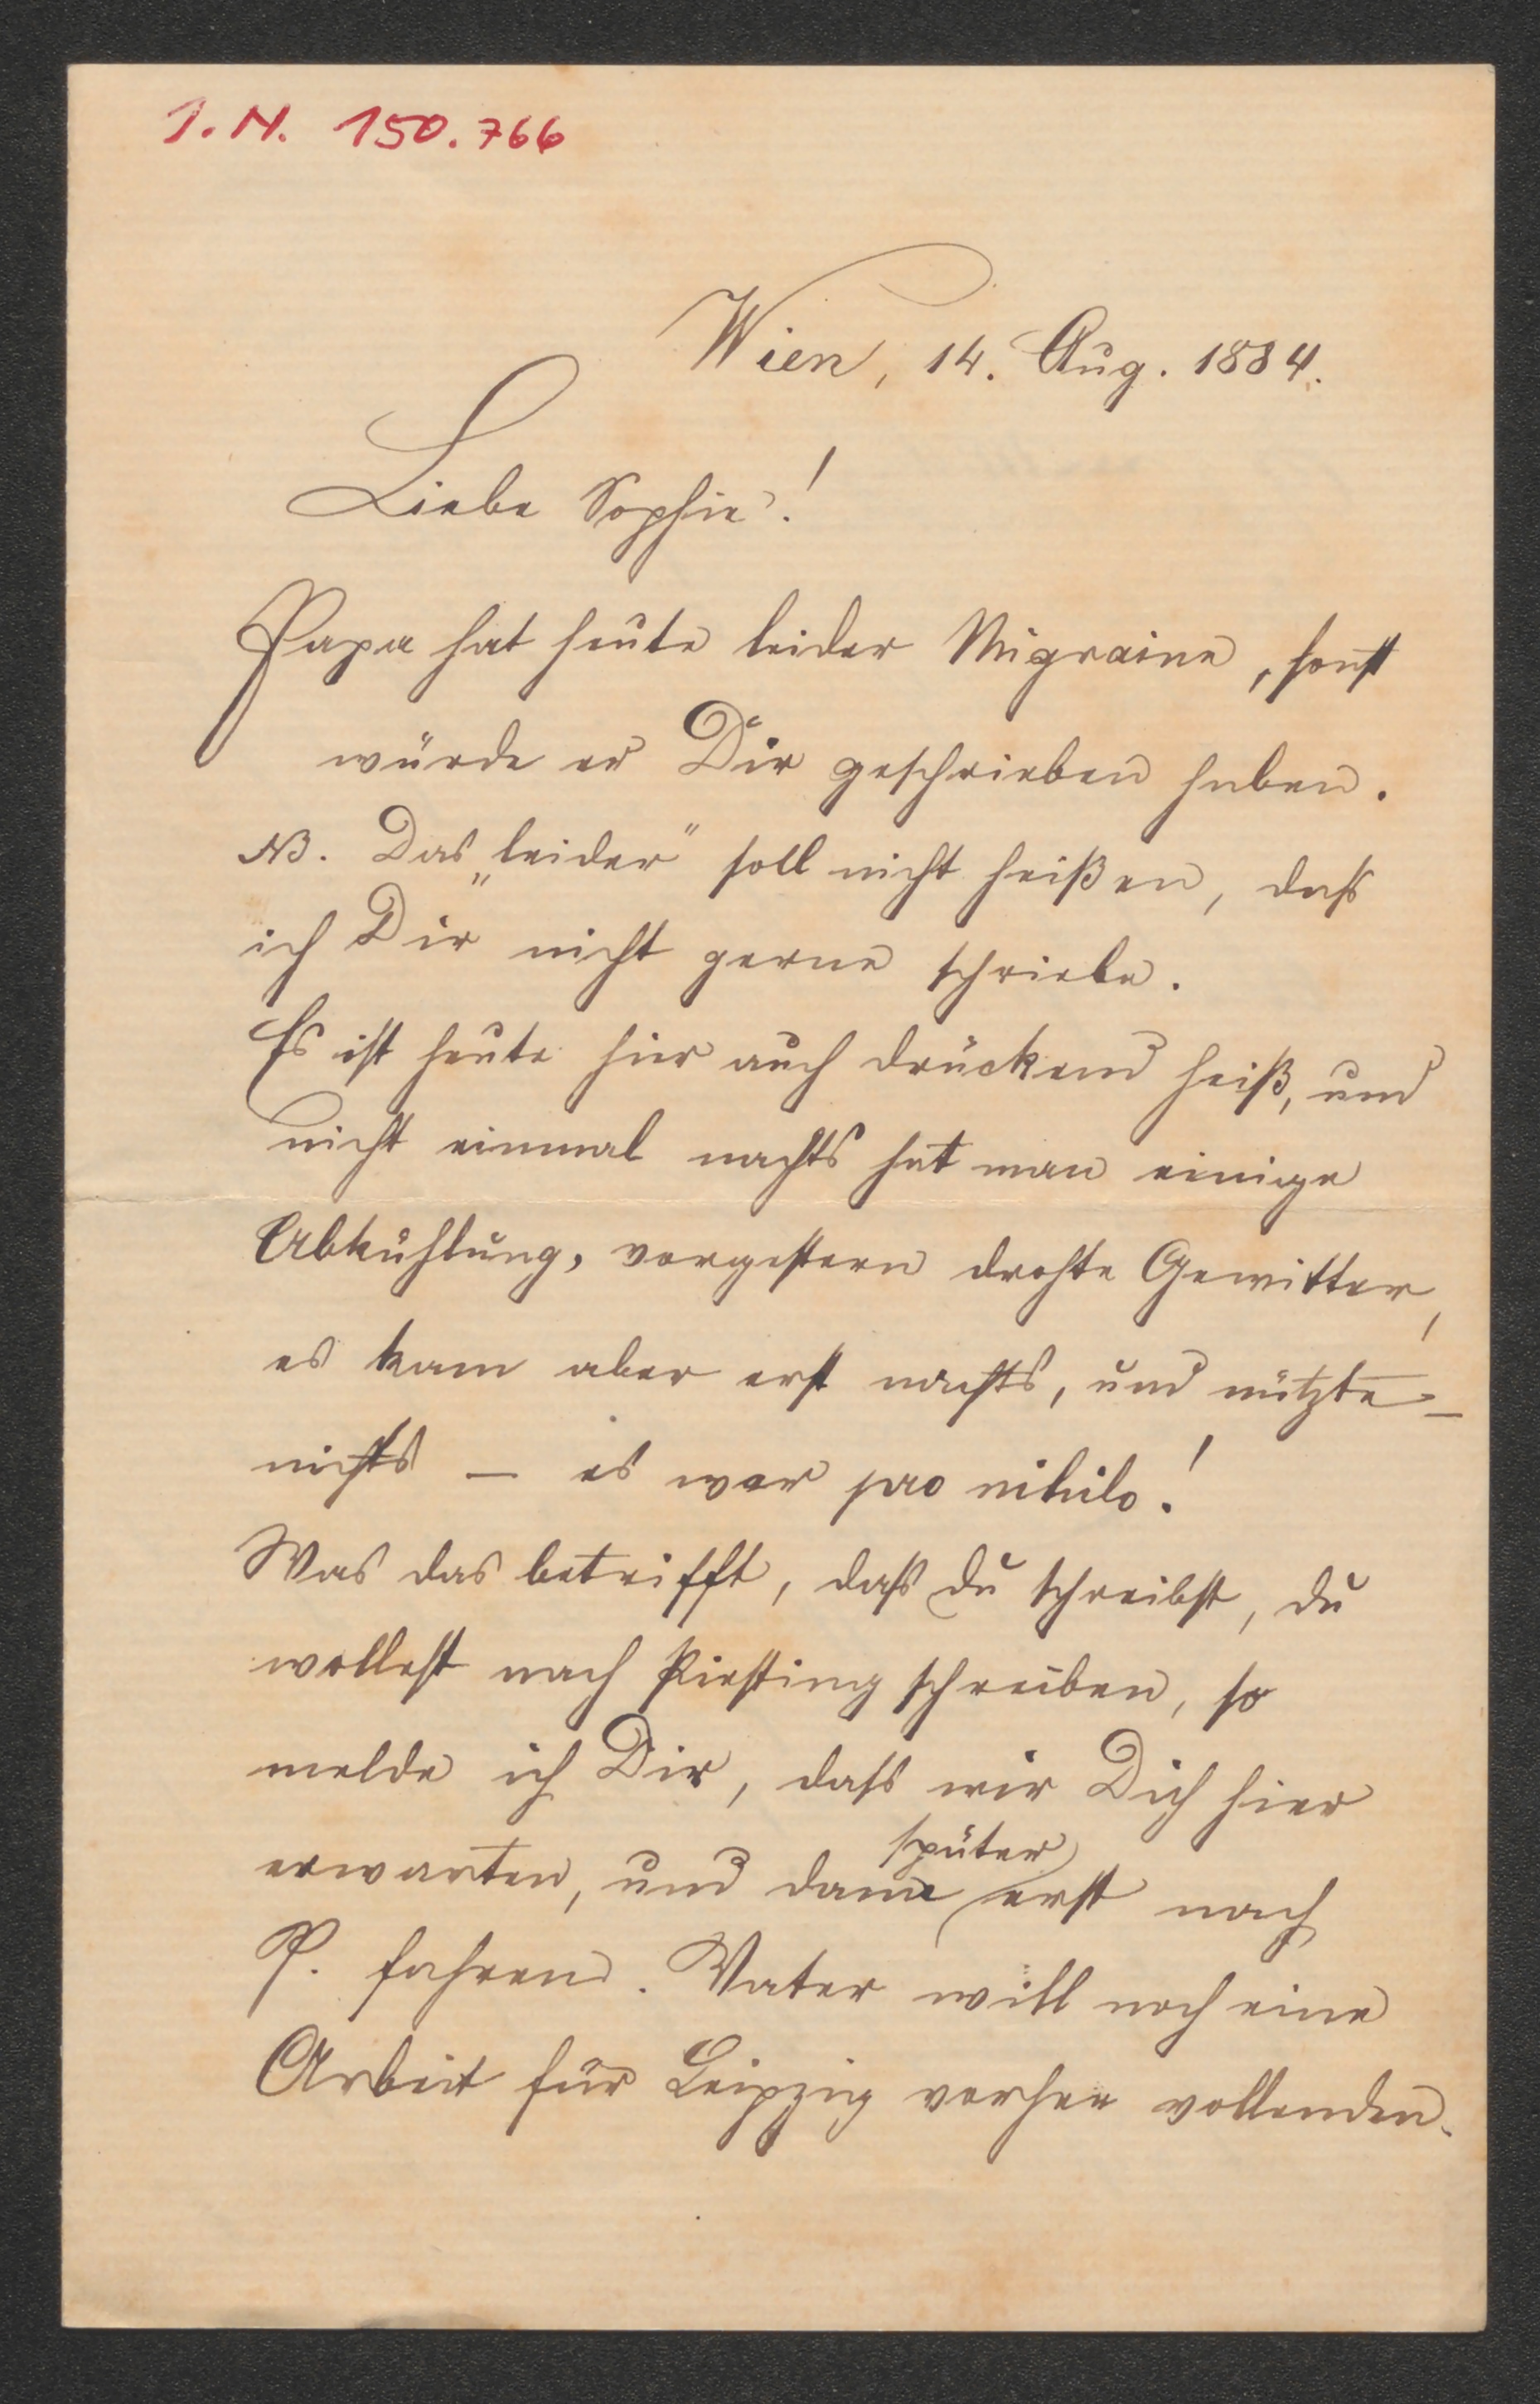 I.N. 150.766
Wien, 14. Aug. 1884.
Liebe Sophie!
Papa hat heute leider Migraine, sonst
würde er Dir geschrieben haben.
NB. Das „leider" soll nicht heißen, dass
ich Dir nicht gerne schriebe.
Es ist heute hier auch drückend heiß, und
nicht einmal nachts hat man einige
Abkühlung, vorgestern drohte Gewitter,
es kam aber erst nachts, und nützte –
nichts – es war pro nihilo!
Was das betrifft, dass du schreibst, du
wollest nach Piesting schreiben, so
melde ich Dir, dass wir Dich hier
später
erwarten, und dann erst nach
P. fahren. Vater will noch eine
Arbeit für Leipzig vorher vollenden.